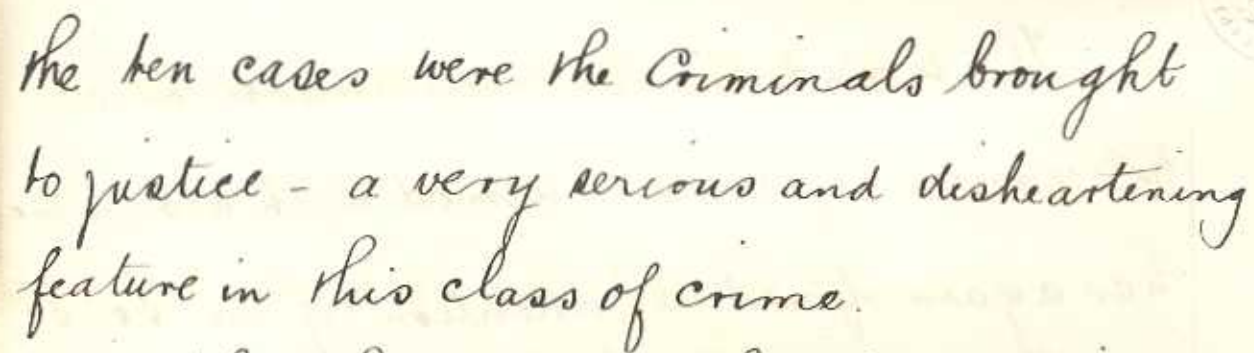 the ten cases were the Criminals brought
to justice - a very serious and disheartening
feature in this class of crime.